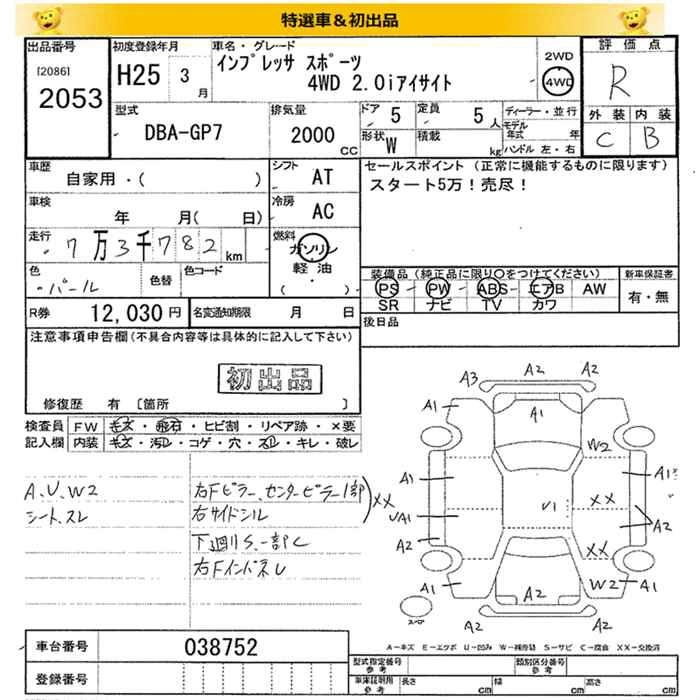 特選車&初出品
出品番号 初度登録年月 車名・グレード 評価点
[2086] H25 3月 インプレッサ スポーツ 2WD R
2053 4WD 2.0iアイサイト 4WD
外装 内装
型式 排気量 ドア 5 定員 5人 ディーラー・並行 C B
DBA-GP7 2000cc 形状 W 積載 kg モデル年式 年
ハンドル 左・右
車歴 シフト セールスポイント (正常に機能するものに限ります)
自家用・( ) AT スタート5万!売尽!
車検 冷房
年 月( 日) AC
走行 燃料
7万3千782km ガソリン
色 色替 色コード 軽油 装備品(純正品に限り○をつけてください) 新車保証書
パール ( ・ ) PS PW ABS エアB AW 有・無
R券 12,030円 名変通知期限 月 日 SR ナビ TV カワ
後日品
注意事項申告欄(不具合内容等は具体的に記入して下さい)
初出品
修復歴 有 [箇所 ]
検査員 FW キズ・飛石・ヒビ割・リペア跡・×要
記入欄 内装 キズ・汚レ・コゲ・穴・スレ・キレ・破レ
A、U、W2 右Fピラー、センターピラー1部 XX
シート、スレ 右サイドシル
下廻りS、一部C
右Fインパネし
A3 A2 A2
A1 A1 A1
W2
A1 A1
UA1 U1 XX
A2 A2
XX
A1 W2 A1
A2
A2 A2
スペア
A-キズ E-エクボ U-凹み W-補修跡 S-サビ C-腐食 XX-交換済
車台番号 038752
登録番号
型式指定番号 参考 類別区分番号 参考
車庫証明用 参考 長さ cm 幅 cm 高さ cm